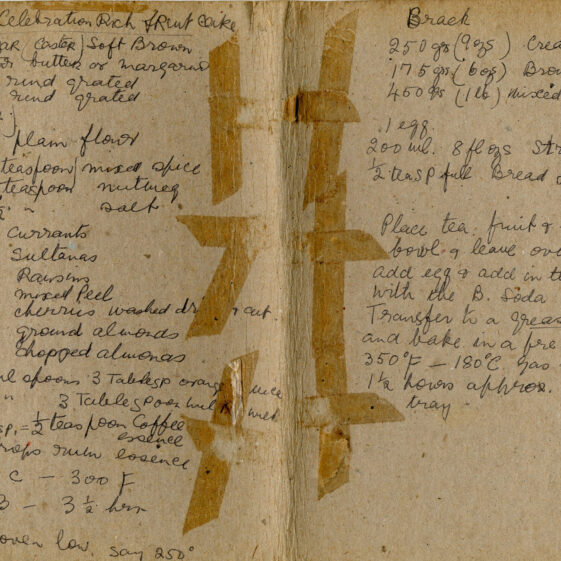 Celebration Rich fruit Cake
(Caster) Soft Brown
butter or margarine
rind grated
rind grated
plain flour
teaspoon mixed spice
teaspoon nutmeg
" salt
Currants
Sultanas
Raisins
mixed Peel
cherries washed cut
ground almonds
chopped almonds
spoons 3 Tablesp orange
" 3 Tablespoon milk
½ teaspoon Coffee
essence
rum essence
C — 300 F
3 — 3½ hrs
oven low. say 250°
Brack
250 gs (9ozs) Crea
175 gs (6ozs) Brow
450 gs (1 lb) mixed
1 egg.
200 ml. 8 flozs Str
½ teasp full Bread
Place tea, fruit &
bowl & leave ove
add egg & add in th
with the B. Soda
Transfer to a greas
and bake in a pre
350°F — 180°C gas
1½ hours approx.
tray